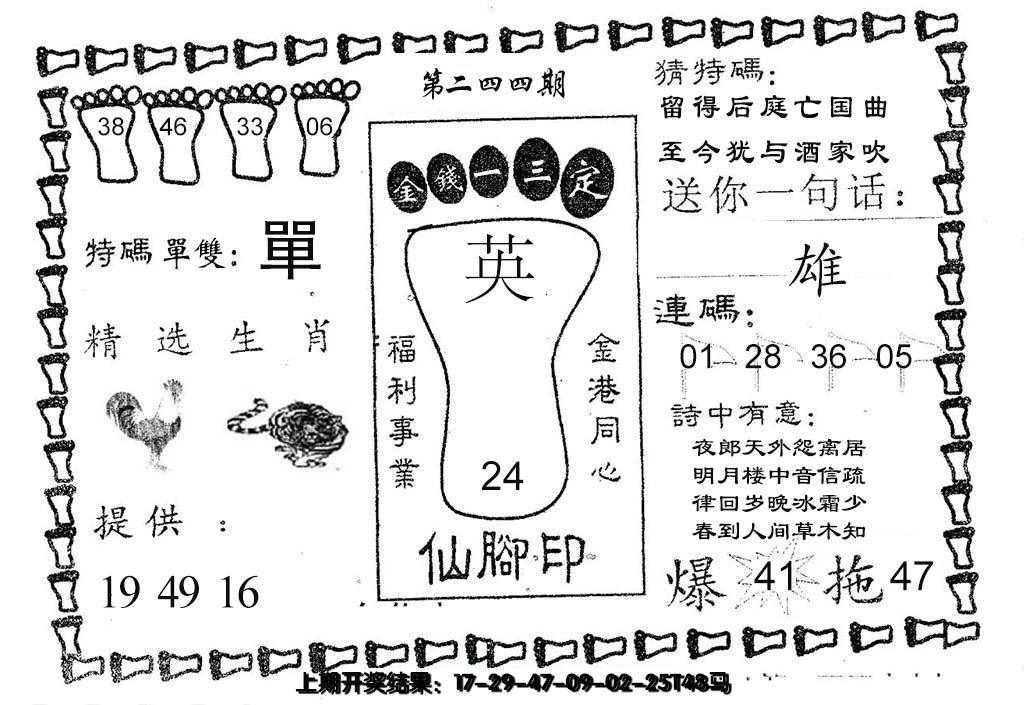 第二四四期
38 46 33 06
特碼單雙: 單
精选生肖
提供:
19 49 16
金錢一三定
英
福利事業
金港同心
24
仙腳印
猜特碼:
留得后庭亡国曲
至今犹与酒家吹
送你一句话:
雄
連碼:
01 28 36 05
詩中有意:
夜郎天外怨离居
明月楼中音信疏
律回岁晚冰霜少
春到人间草木知
爆 41 拖 47
上期开奖结果: 17-29-47-09-02-25T48马